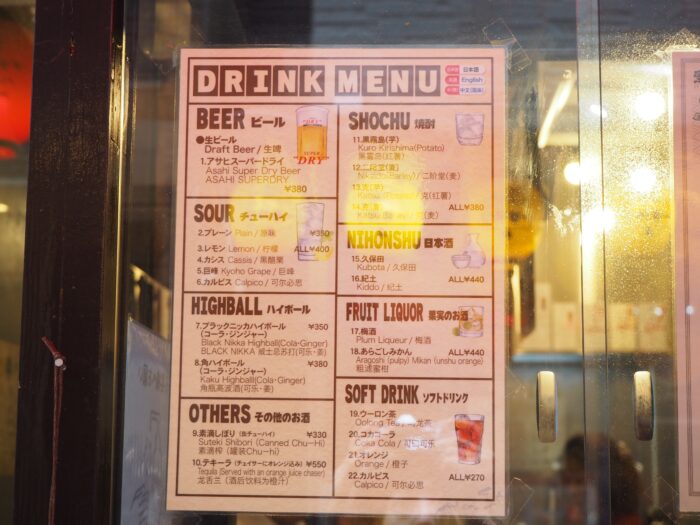 DRINK MENU
日本語
English
中文(简体)
BEER ビール
●生ビール
Draft Beer / 生啤
1.アサヒスーパードライ
Asahi Super Dry Beer
ASAHI SUPERDRY
¥380
SUPER
"DRY"
SOUR チューハイ
2.プレーン Plain / 原味 ¥350
3.レモン Lemon / 柠檬 ALL¥400
4.カシス Cassis / 黑醋栗
5.巨峰 Kyoho Grape / 巨峰
6.カルピス Calpico / 可尔必思
HIGHBALL ハイボール
7.ブラックニッカハイボール ¥350
(コーラ・ジンジャー)
Black Nikka Highball(Cola・Ginger)
BLACK NIKKA 威士忌苏打(可乐・姜)
8.角ハイボール ¥380
(コーラ・ジンジャー)
Kaku Highball(Cola・Ginger)
角瓶高波酒(可乐・姜)
OTHERS その他のお酒
9.素滴しぼり (缶チューハイ) ¥330
Suteki Shibori (Canned Chu-Hi)
素滴榨 (罐装Chu-hi)
10.テキーラ (チェイサーにオレンジ込み) ¥550
Tequila (Served with an orange juice chaser)
龙舌兰 (酒后饮料为橙汁)
SHOCHU 焼酎
11.黒霧島(芋)
Kuro Kirishima(Potato)
黑雾岛(红薯)
12.二階堂(麦)
(Barley) / 二阶堂(麦)
13.
(红薯)
14.
(麦) ALL¥380
NIHONSHU 日本酒
15.久保田
Kubota / 久保田
16.紀土 ALL¥440
Kiddo / 纪土
FRUIT LIQUOR 果実のお酒
17.梅酒
Plum Liqueur / 梅酒
18.あらごしみかん ALL¥440
Aragoshi (pulpy) Mikan (unshu orange)
粗滤蜜柑
SOFT DRINK ソフトドリンク
19.ウーロン茶
Oolong Tea / 乌龙茶
20.コカコーラ
Coka Cola / 可口可乐
21.オレンジ
Orange / 橙子
22.カルピス ALL¥270
Calpico / 可尔必思